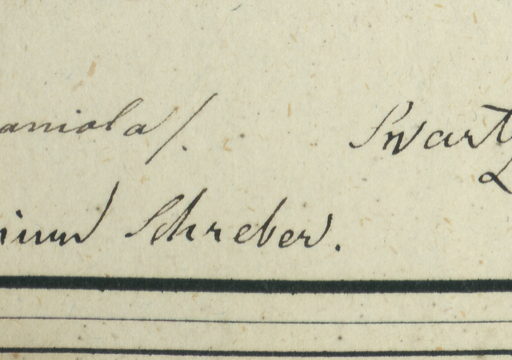 aniola/. Swartz
ium Schreber.